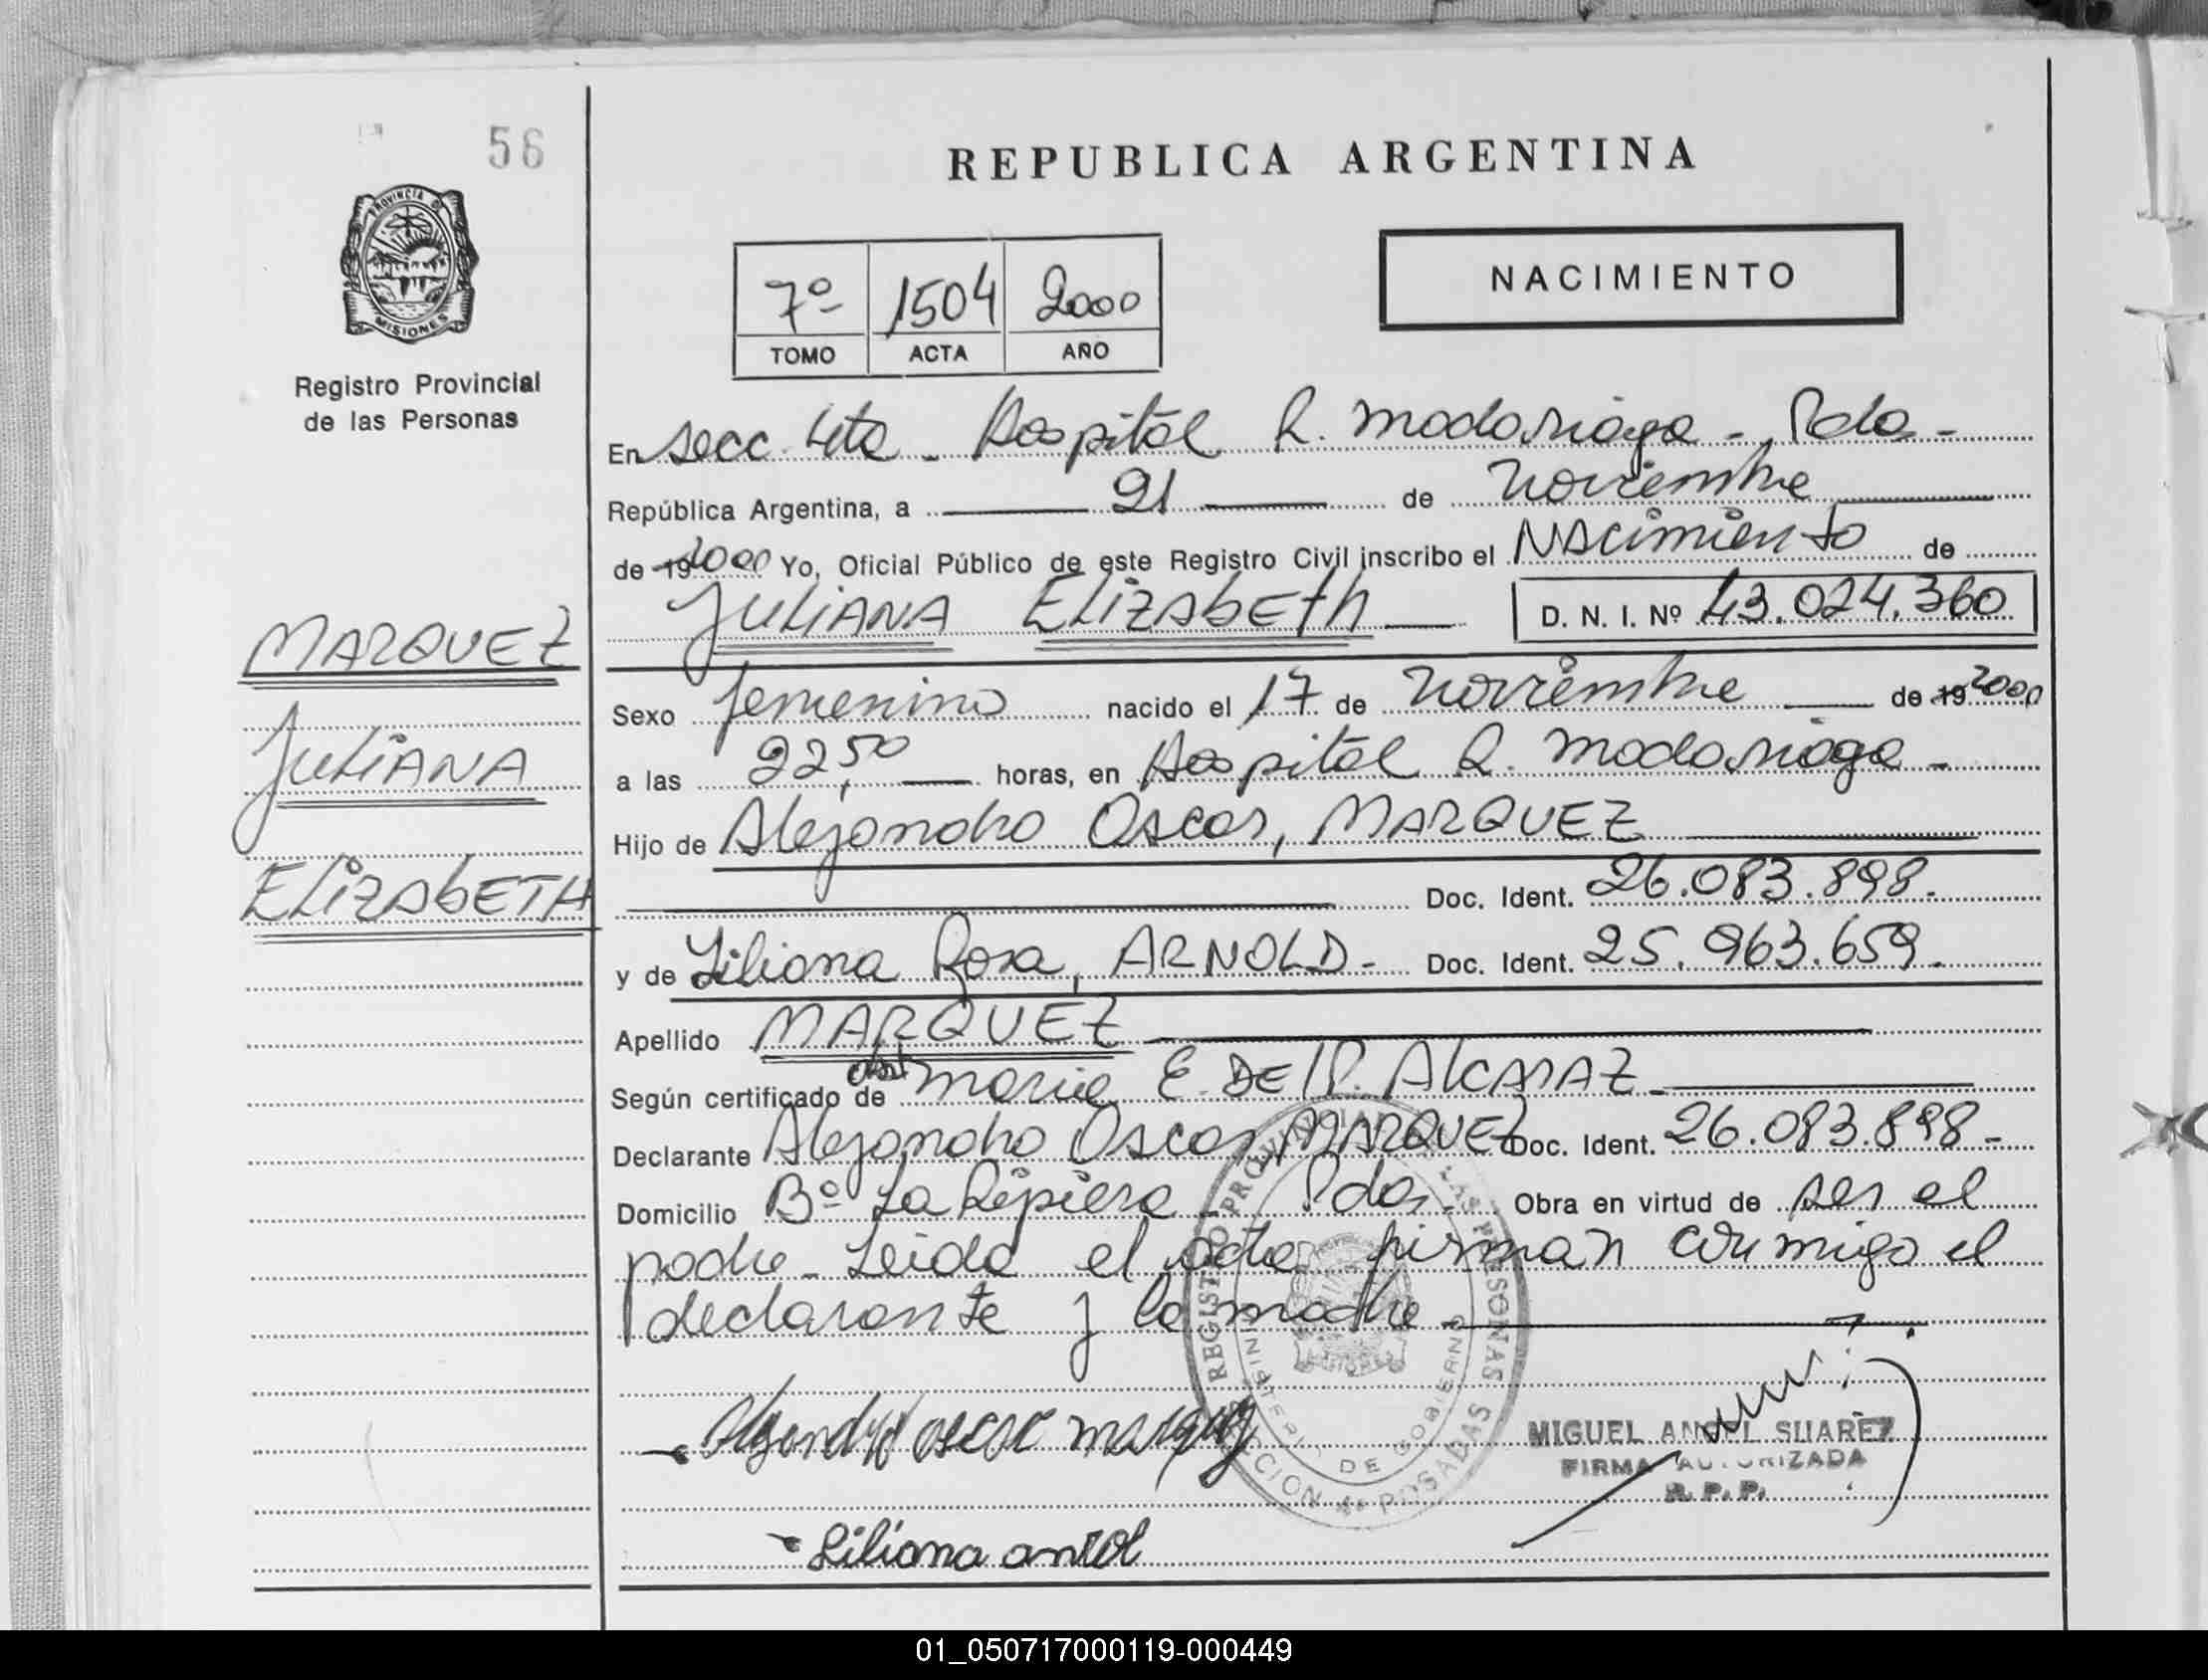 56
REPUBLICA ARGENTINA
PROVINCIA DE
MISIONES
Registro Provincial
de las Personas
7º 1504 2000
TOMO ACTA AÑO
NACIMIENTO
En secc 4ta - Hospital R. Madariaga - Pdas -
República Argentina, a 21 de Noviembre
de 19 2000 Yo, Oficial Público de este Registro Civil inscribo el Nacimiento de
JULIANA ELIZAbETh D. N. I. Nº 43.024.360
MARQUEZ
JULIANA
ELIZAbETH
Sexo femenino nacido el 17 de Noviembre de 19 2000
a las 22,50 horas, en Hospital R. Madariaga -
Hijo de Alejandro Oscar, MARQUEZ
Doc. Ident. 26.083.898.
y de Liliana Rosa, ARNOLD - Doc. Ident. 25.963.659.
Apellido MARQUEZ
Según certificado de obst Maria E. DEl P. AlCARAZ -
Declarante Alejandro Oscar MARQUEZ Doc. Ident. 26.083.898 -
Domicilio Bº La Ripiera - Pdas. Obra en virtud de ser el
padre - Leida el acta firman conmigo el
declarante y la madre -
REGISTRO PROVINCIAL DE LAS PERSONAS
MINISTERIO DE GOBIERNO
POSADAS
Alejandro oscar marquez
MIGUEL ANGEL SUAREZ
FIRMA AUTORIZADA
R. P. P.
Liliana arnol
01_050717000119-000449